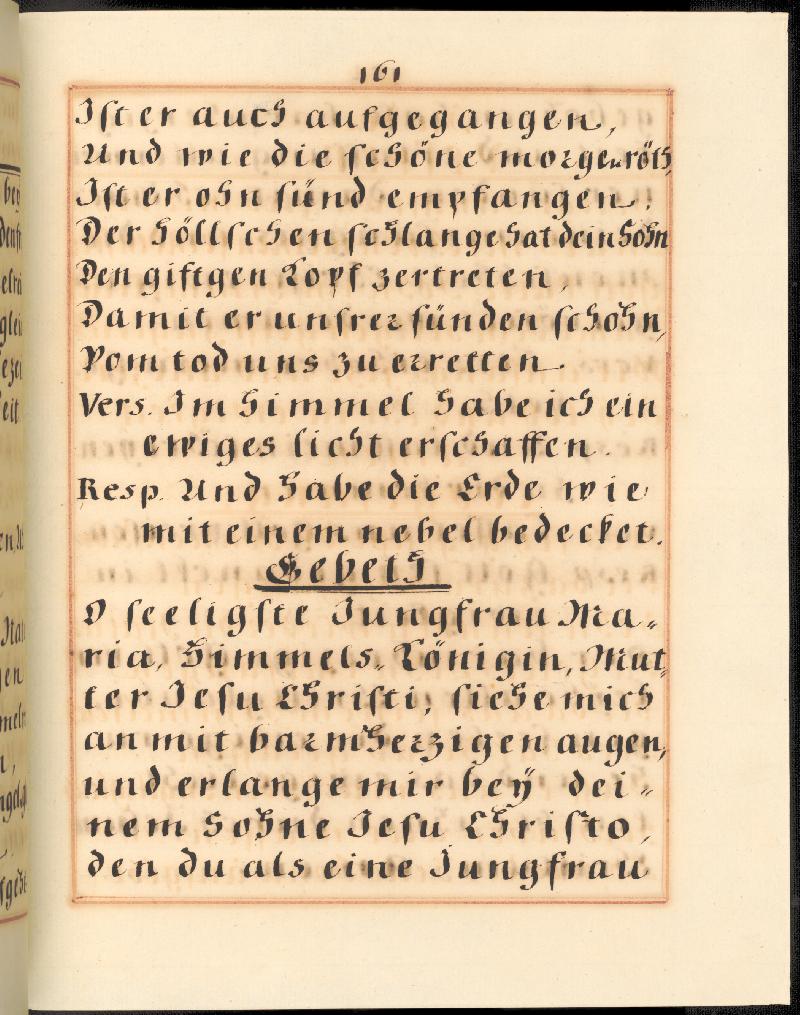 161
Ist er auch aufgegangen,
Und wie die schöne morgenröth,
Ist er ohn sünd empfangen.
Der höllschen schlange hat dein Sohn
Den giftgen Kopf zertreten,
Damit er unsrer sünden schohn,
Vom tod uns zu erretten.
Vers. Im himmel habe ich ein
ewiges licht erschaffen.
Resp. Und habe die Erde wie
mit einem nebel bedecket.
Gebeth
O seeligste Jungfrau Ma-
ria, Himmels-Königin, Mut-
ter Jesu Christi, siehe mich
an mit barmherzigen augen,
und erlange mir bey dei-
nem Sohne Jesu Christo,
den du als eine Jungfrau